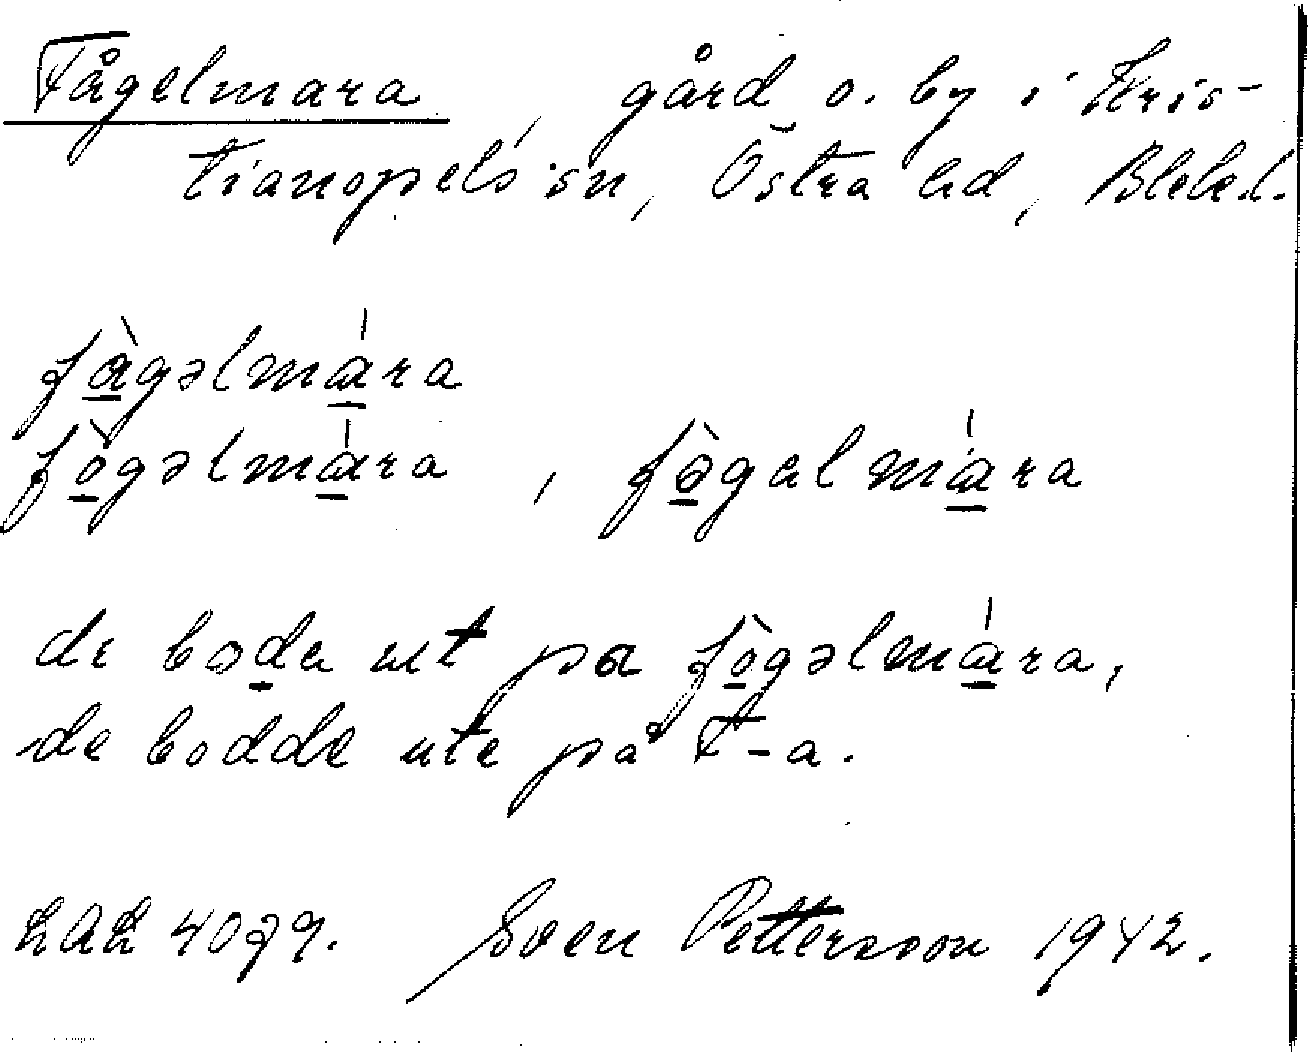 Fågelmara, gård o. by i Kris-
tianopels sn, Östra hd, Blek.l.
fàgəlmára
fògəlmára, fə̀galmára
de boda ut pa fògəlmára,
de bodde ute på F-a.
LAL 4079. Sven Pettersson 1942.